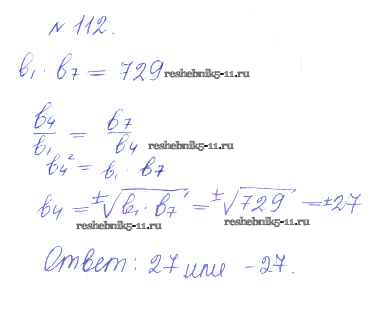 № 112.
b₁ · b₇ = 729 reshebnik5-11.ru
b₄/b₁ = b₇/b₄ reshebnik5-11.ru
b₄² = b₁ · b₇
b₄ = ±√(b₁ · b₇) = ±√729 = ±27
reshebnik5-11.ru reshebnik5-11.ru
Ответ: 27 или -27.
reshebnik5-11.ru